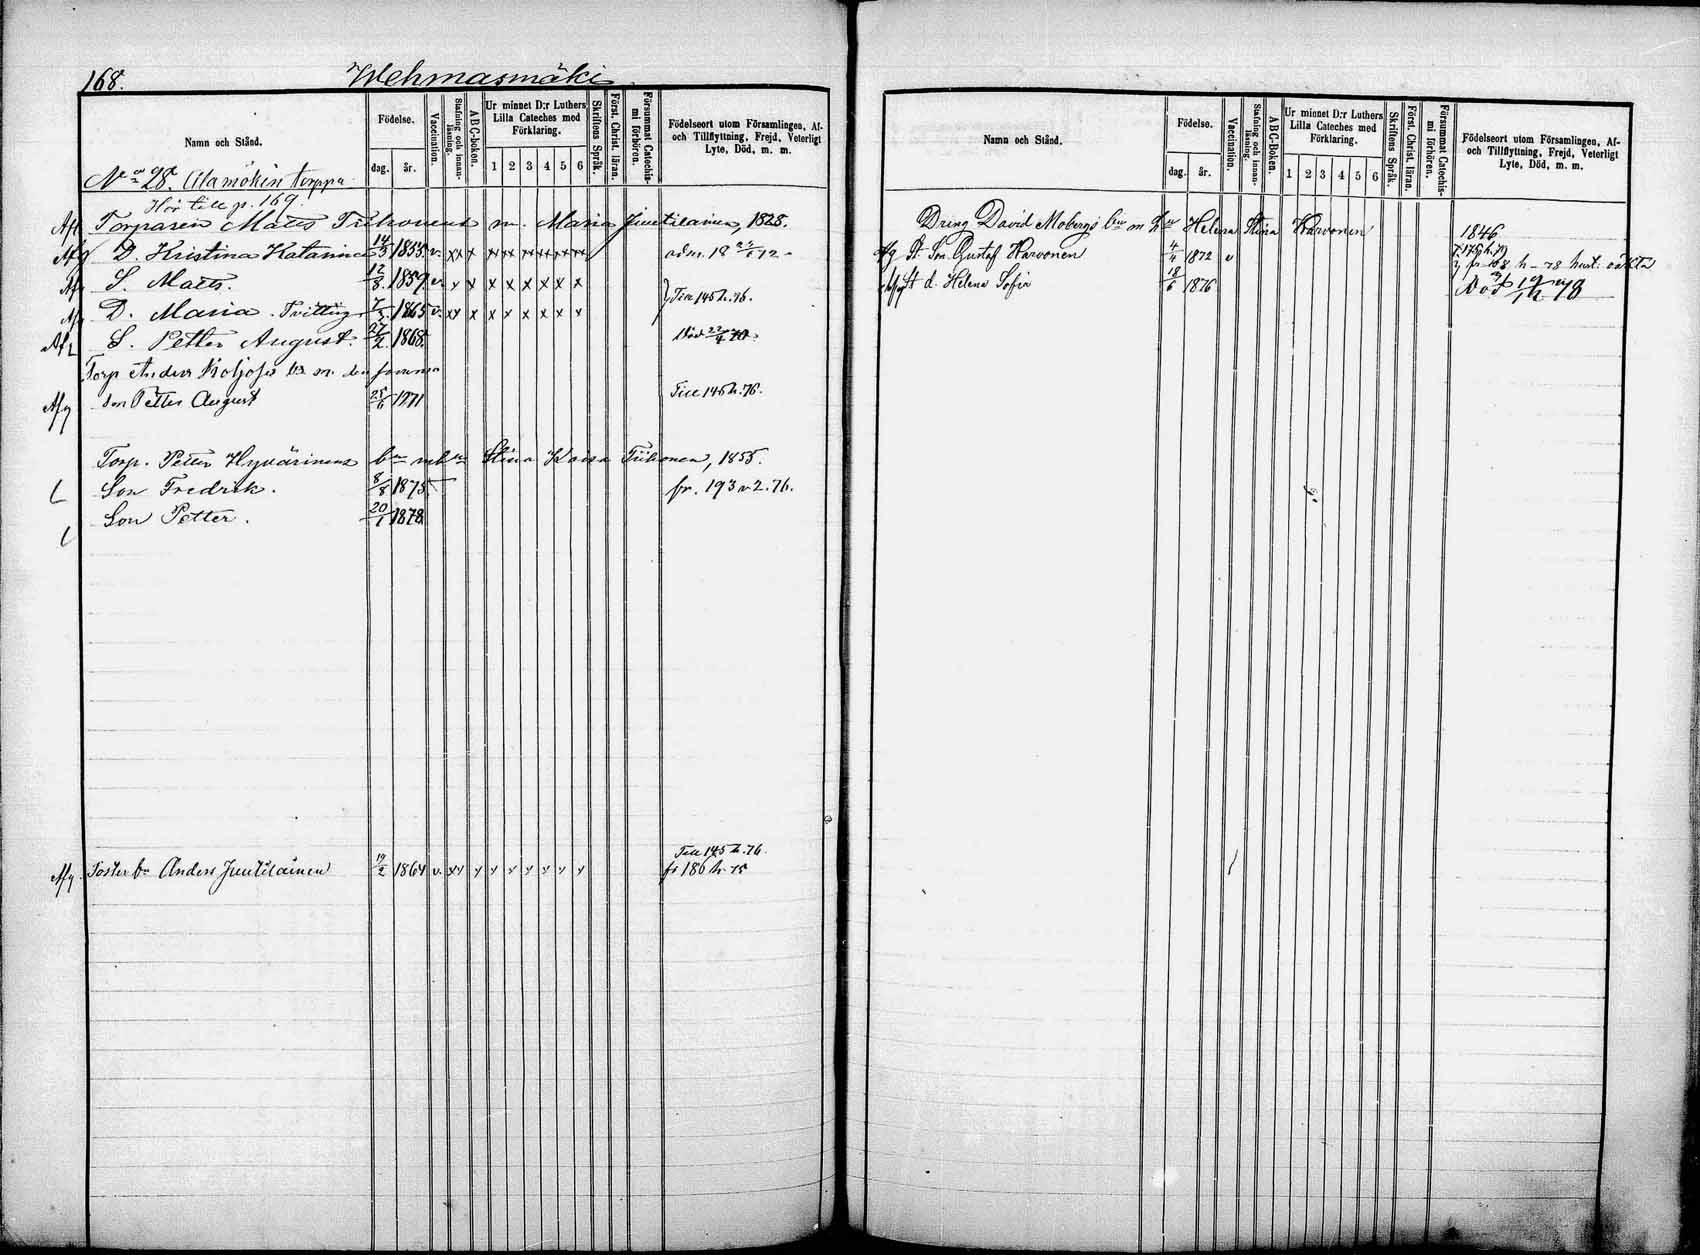 168.
Wehmasmäki
Namn och Stånd.
Födelse.
dag.
år.
Vaccination.
Stafning och innanläsning.
A B C-boken.
Ur minnet D:r Luthers
Lilla Cateches med
Förklaring.
1 2 3 4 5 6
Skriftens Språk.
Först. Christ. läran.
Försummat Catechismi förhören.
Födelseort utom Församlingen, Af-
och Tillflyttning, Frejd, Veterligt
Lyte, Död, m. m.
No 28. Ulamökin torppa
Hör till p. 169.
Torparen Matts Tiihonens m. Maria Juutilainen, 1828.
Afg D. Kristina Katarina 14/3 1855. v. xx x x xx x xx xx xx adm. 18 72
S. Matts. 12/8. 1859. v. x x x x x x x x
D. Maria. Tvilling 7/3. 1865 v. xx x x x x x x x Till 145 h. 76.
Afg S. Petter August. 27/2. 1868. Död 22/4 70
Torp Anders Koljos br m. den förra
Afg Son Petter August 25/6 1871 Till 145 h. 76.
Torp. Petter Hyvärinens bn m hu Stina Kaisa Tiihonen, 1855.
Son Fredrik. 8/8 1875 fr. 193 v 2. 76.
Son Petter. 20/1 1878
Till 145 h. 76.
Afg. Foster br Anders Juutilainen 19/2 1864 v. xx x x x x x x x fr 186 h. 75
Namn och Stånd.
Födelse.
dag.
år.
Vaccination.
Stafning och innanläsning.
A B C-boken.
Ur minnet D:r Luthers
Lilla Cateches med
Förklaring.
1 2 3 4 5 6
Skriftens Språk.
Först. Christ. läran.
Försummat Catechismi förhören.
Födelseort utom Församlingen, Af-
och Tillflyttning, Frejd, Veterligt
Lyte, Död, m. m.
Dräng David Mobergs bn m hu Helena Stina Karvonen 1846
Afg St. Son Gustaf Karvonen 4/4 1872 v
St d. Helena Sofia 18/6 1876 Död 19 78